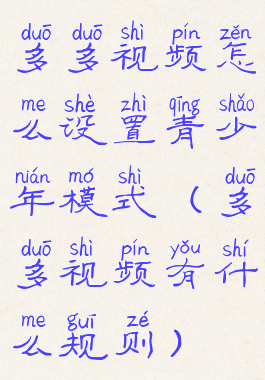 duō duō shì pín zěn
多多视频怎
me shè zhì qīng shǎo
么设置青少
nián mó shì duō
年模式（多
duō shì pín yǒu shí
多视频有什
me guī zé
么规则）